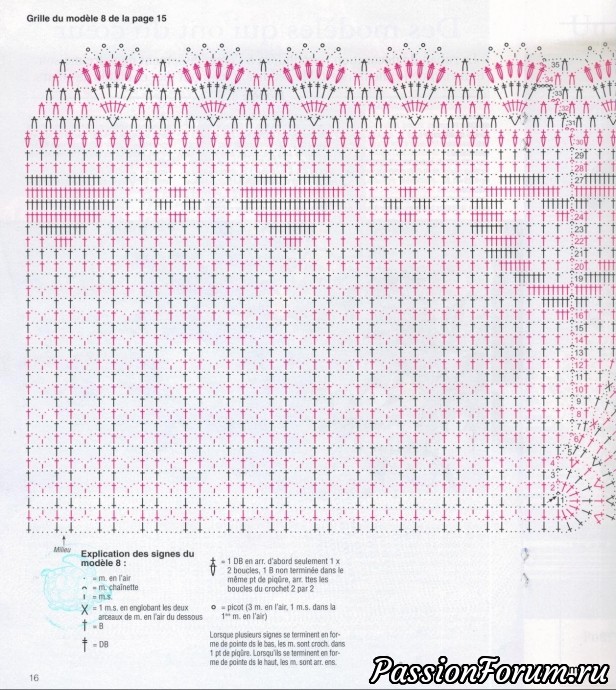 Grille du modèle 8 de la page 15
35
34
33
32
31
30
29
28
27
24
23
22
21
20
19
18
17
16
15
14
13
12
11
10
9
8
7
6
5
4
3
2
Milieu
Explication des signes du
modèle 8 :
= m. en l'air
= m. chaînette
= m.s.
= 1 m.s. en englobant les deux
arceaux de m. en l'air du dessous
= B
= DB
= 1 DB en arr. d'abord seulement 1 x
2 boucles, 1 B non terminée dans le
même pt de piqûre, arr. ttes les
boucles du crochet 2 par 2
= picot (3 m. en l'air, 1 m.s. dans la
1re m. en l'air)
Lorsque plusieurs signes se terminent en for-
me de pointe ds le bas, les m. sont croch. dans
1 pt de piqûre. Lorsqu'ils se terminent en for-
me de pointe ds le haut, les m. sont arr. ens.
16
PassionForum.ru